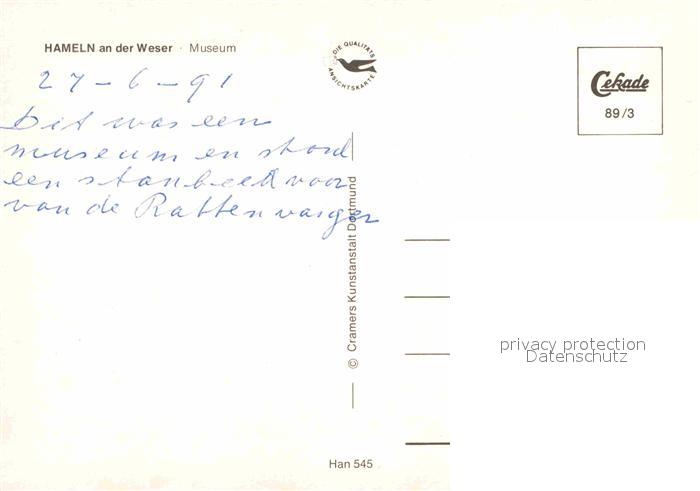 HAMELN an der Weser · Museum
DIE QUALITÄTS
ANSICHTSKARTE
Cekade
89/3
27-6-91
Dit was een
museum en stond
een stanbeeld voor
van de Rattenvanger
© Cramers Kunstanstalt Dortmund
privacy protection
Datenschutz
Han 545